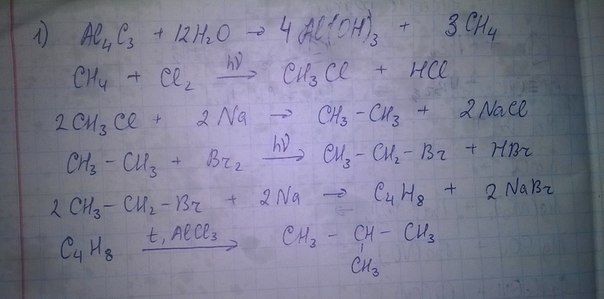 1) Al₄C₃ + 12H₂O → 4Al(OH)₃ + 3CH₄
CH₄ + Cl₂ →(hν) CH₃Cl + HCl
2CH₃Cl + 2Na → CH₃-CH₃ + 2NaCl
CH₃-CH₃ + Br₂ →(hν) CH₃-CH₂-Br + HBr
2CH₃-CH₂-Br + 2Na → C₄H₈ + 2NaBr
C₄H₈ →(t, AlCl₃) CH₃ - CH - CH₃
CH₃